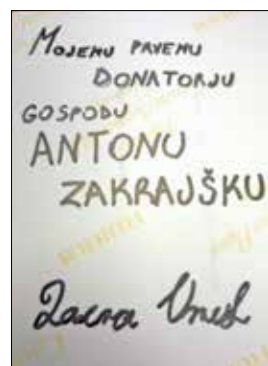 MOJEMU PRVEMU
DONATORJU
GOSPODU
ANTONU
ZAKRAJŠKU